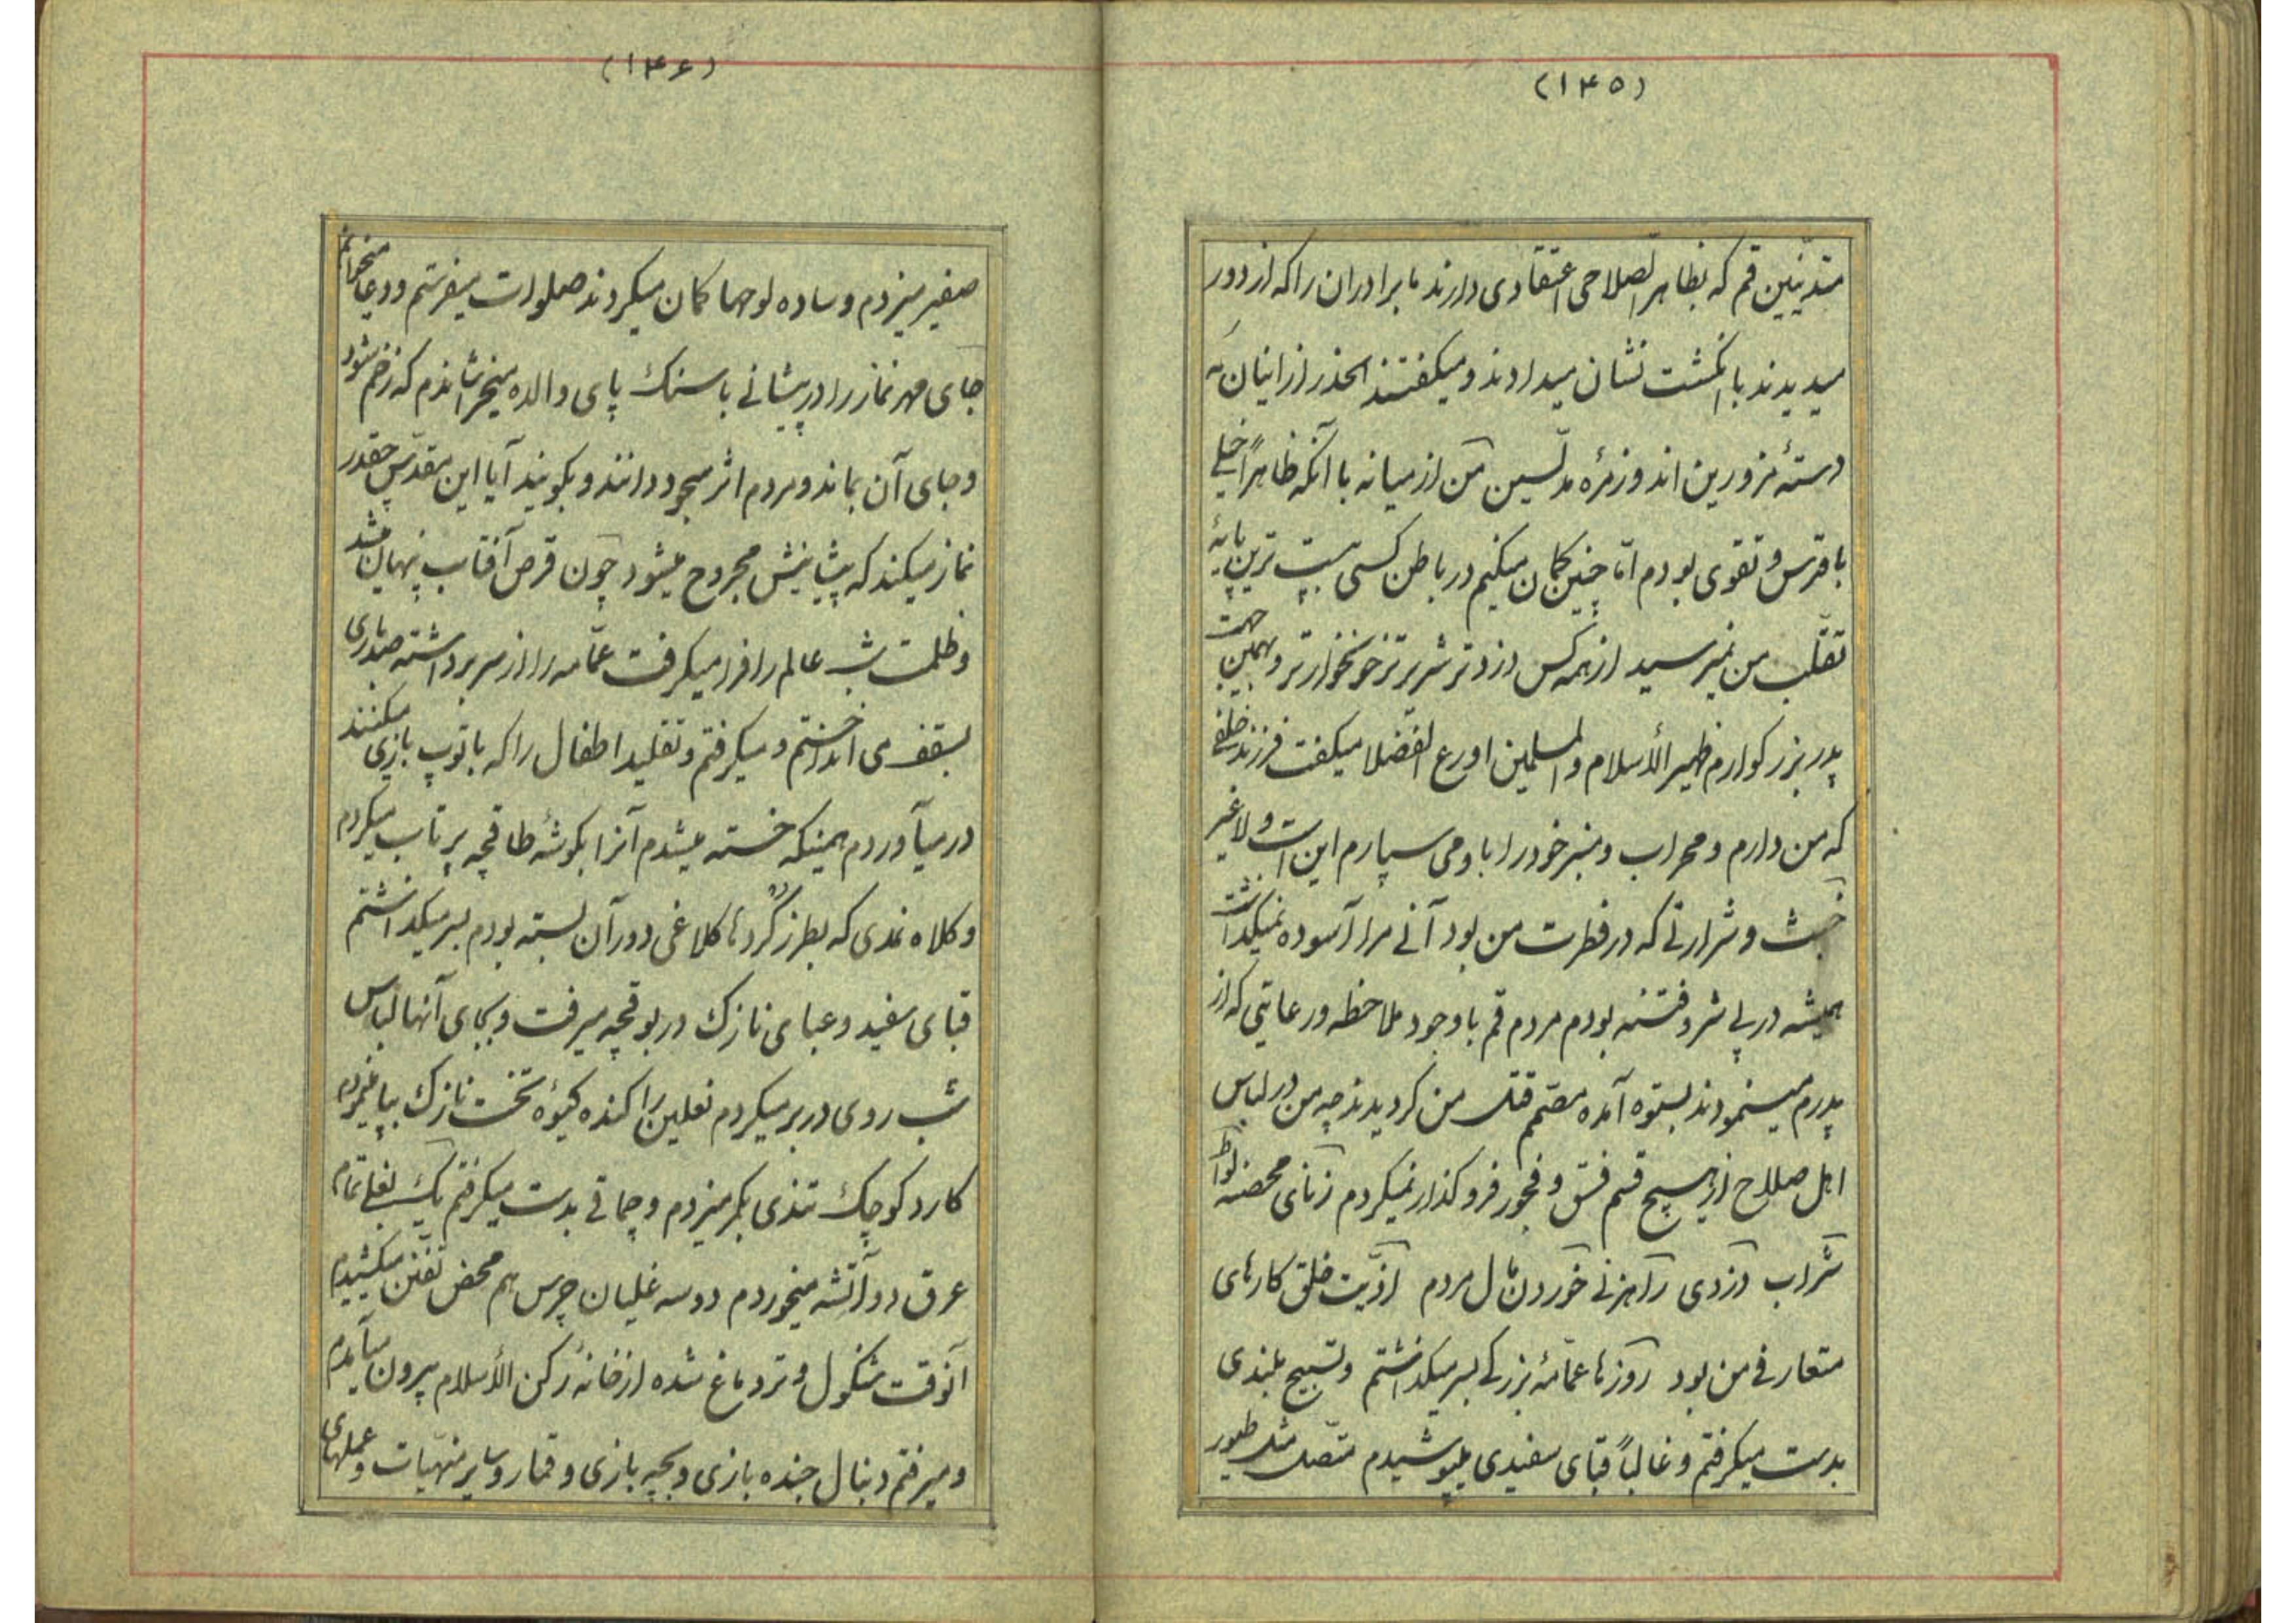 (۱۴۵)
متدیّنین قم که بظاهر الصلاحی اعتقادی دارند ما برادران را که از دور
میدیدند با انگشت نشان میدادند و میگفتند الحذر از اینان که
دستهٔ مزورین اند و زمرهٔ مدلّسین من از میانه با آنکه ظاهراً خیلی
با قدس و تقوی بودم امّا چنین گمان میکنم در باطن کسی بپست ترین پایهٔ
تقلّب من نمیرسید از همه کس دزدتر شریرتر خونخوارتر و بهمین جهت
پدر بزرگوارم ظهیر الأسلام والمسلمین اورع الفضلا میگفت فرزند خلفی
که من دارم و محراب و منبر خود را باو می سپارم این است و لاغیر
خبث و شرارتی که در فطرت من بود آنی مرا آسوده نمیگذاشت
همیشه در پی شر و فتنه بودم مردم قم با وجود ملاحظه و رعایتی که از
پدرم مینمودند بستوه آمده مصمّم قتل من گردیدند چه من در لباس
اهل صلاح از هیچ قسم فسق و فجور فروگذار نمیکردم زنای محصنه لواط
شراب دزدی راهزنی خوردن مال مردم اذیّت خلق کارهای
متعارفی من بود روزها عمّامهٔ بزرگی بسر میگذاشتم و تسبیح بلندی
بدست میگرفتم و غالباً قبای سفیدی میپوشیدم متّصل مثل طیور
(۱۴۶)
صفیر میزدم و ساده لوحها گمان میکردند صلوات میفرستم و دعا میخوانم
جای مهر نماز را در پیشانی با سنگ پای والده میخراشاندم که زخم شود
و جای آن بماند و مردم اثر سجود دانند و بگویند آیا این مقدّس چقدر
نماز میکند که پیشانیش مجروح میشود چون قرص آفتاب پنهان میشد
و ظلمت شب عالم را فرا میگرفت عمّامه را از سر برداشته صد باری
بسقف می انداختم و میگرفتم و تقلید اطفال را که با توپ بازی میکنند
در میآوردم همینکه خسته میشدم آنرا بگوشهٔ طاقچه پرتاب میکردم
و کلاه نمدی که بطرز کُردها کلاغی دور آن بسته بودم بسر میگذاشتم
قبای سفید و عبای نازک در بوقچه میرفت و بجای آنها لباس
شب روی در بر میکردم نعلین را کنده گیوهٔ تخت نازک بپا مینمودم
کارد کوچک تندی بکمر میزدم و چماقی بدست میگرفتم یک بغلی تمام
عرق دو آتشه میخوردم دو سه غلیان چرس هم محض تفنّن میکشیدم
آنوقت شنگول و تر دماغ شده از خانهٔ رکن الأسلام بیرون میآمدم
و میرفتم دنبال جنده بازی و بچه بازی و قمار و سایر منهیّات و عملهای